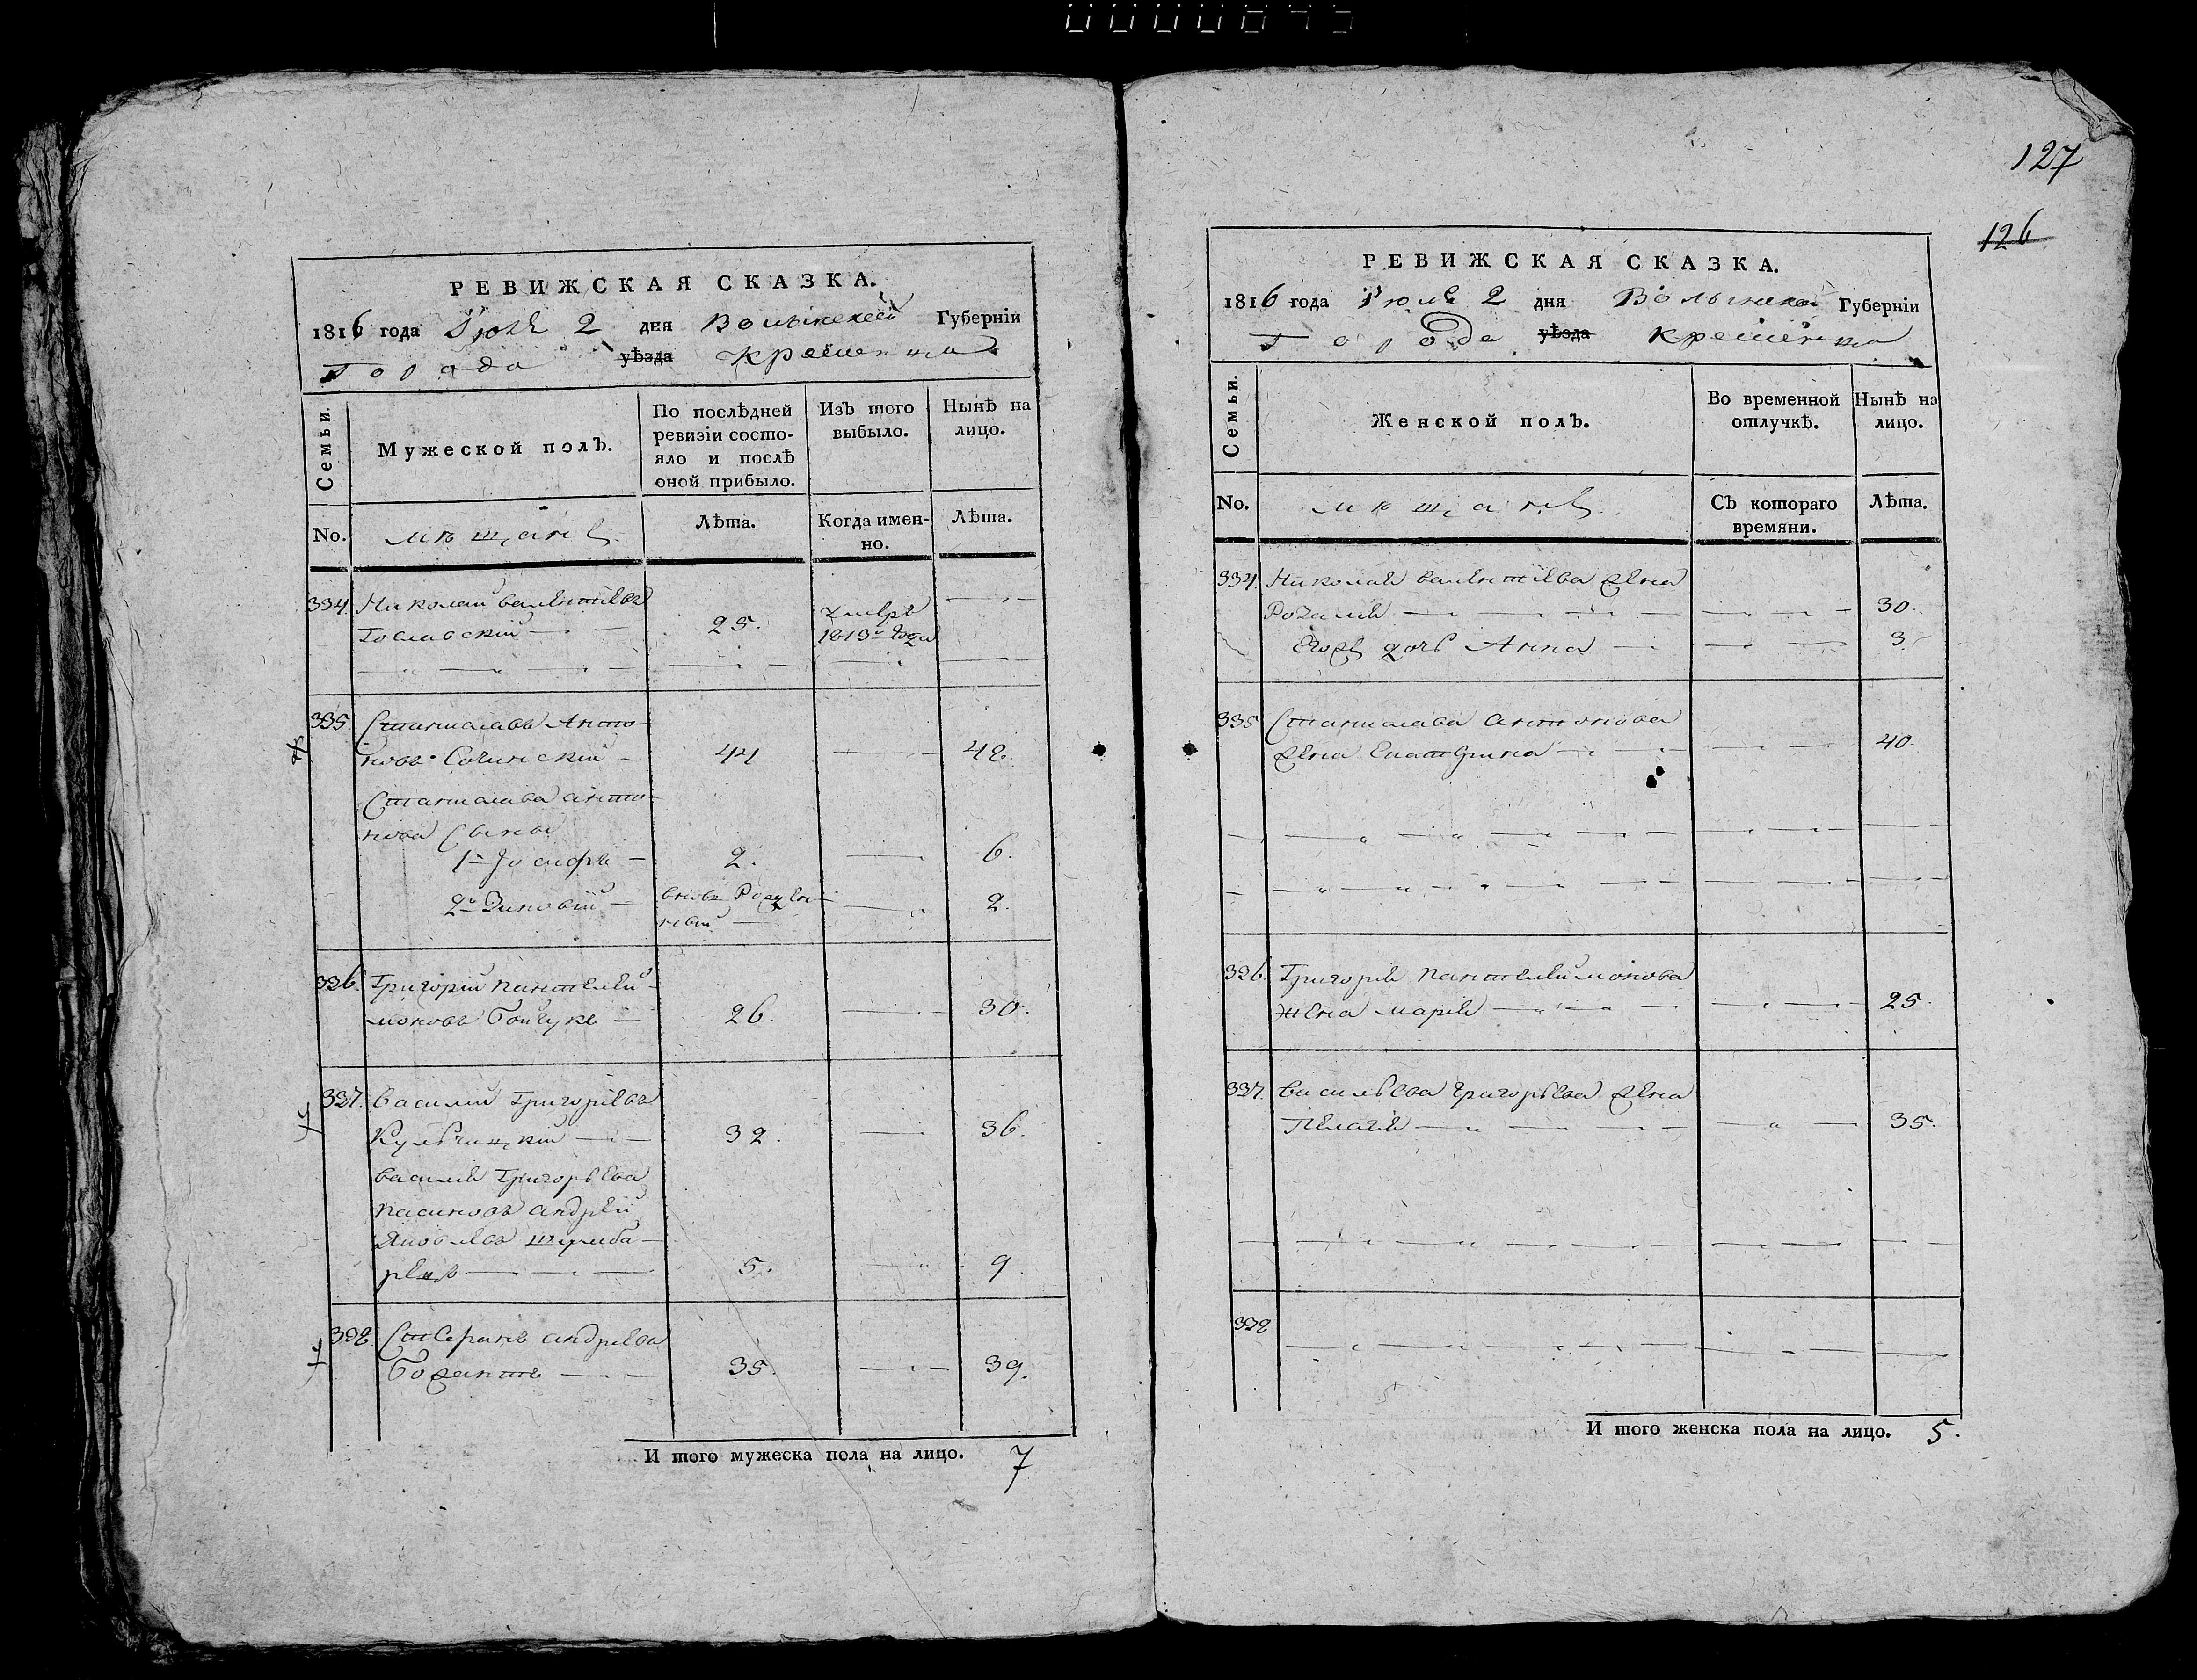 0000845
127
126
РЕВИЖСКАЯ СКАЗКА.
1816 года Іюля 2 дня Волынской Губерніи
Города уѣзда Кременца
Семьи.
Мужеской полъ.
По послѣдней ревизіи состо-
яло и послѣ оной прибыло.
Изъ того выбыло.
Нынѣ на лицо.
No.
мѣщане
Лѣта.
Когда имен-
но.
Лѣта.
334. Николай Валентіевъ
Гославскій 25. умеръ 1813го года
335 Станиславъ Анто-
новъ Сочинскій 44 48.
Станислава Анто-
нова Сыны
1й Іосифъ 2. 6.
2й Зиновій вновь Рожден-
ный 2.
336. Григорій Пантелей-
моновъ Бойчукъ 26. 30.
337. Василий Григоріевъ
Кульчицкій 32. 36.
Василія Григорьева
пасынокъ Андрей
Яковлевъ
5. 9.
338. Стефанъ Андріевъ
35. 39.
И того мужеска пола на лицо. 7
РЕВИЖСКАЯ СКАЗКА.
1816 года Іюля 2 дня Волынской Губерніи
Города уѣзда Кременца
Семьи.
Женской полъ.
Во временной отлучкѣ.
Нынѣ на лицо.
No.
мѣщане
Съ котораго времяни.
Лѣта.
334. Николая Валентіева жена
Розалія 30.
Егожъ дочь Анна 3.
335 Станислава Антонова
жена Екатерина 40.
336. Григорія Пантелеймонова
жена Марія 25.
337. Васильева Григорьева жена
Пелагія 35.
338
И того женска пола на лицо. 5.